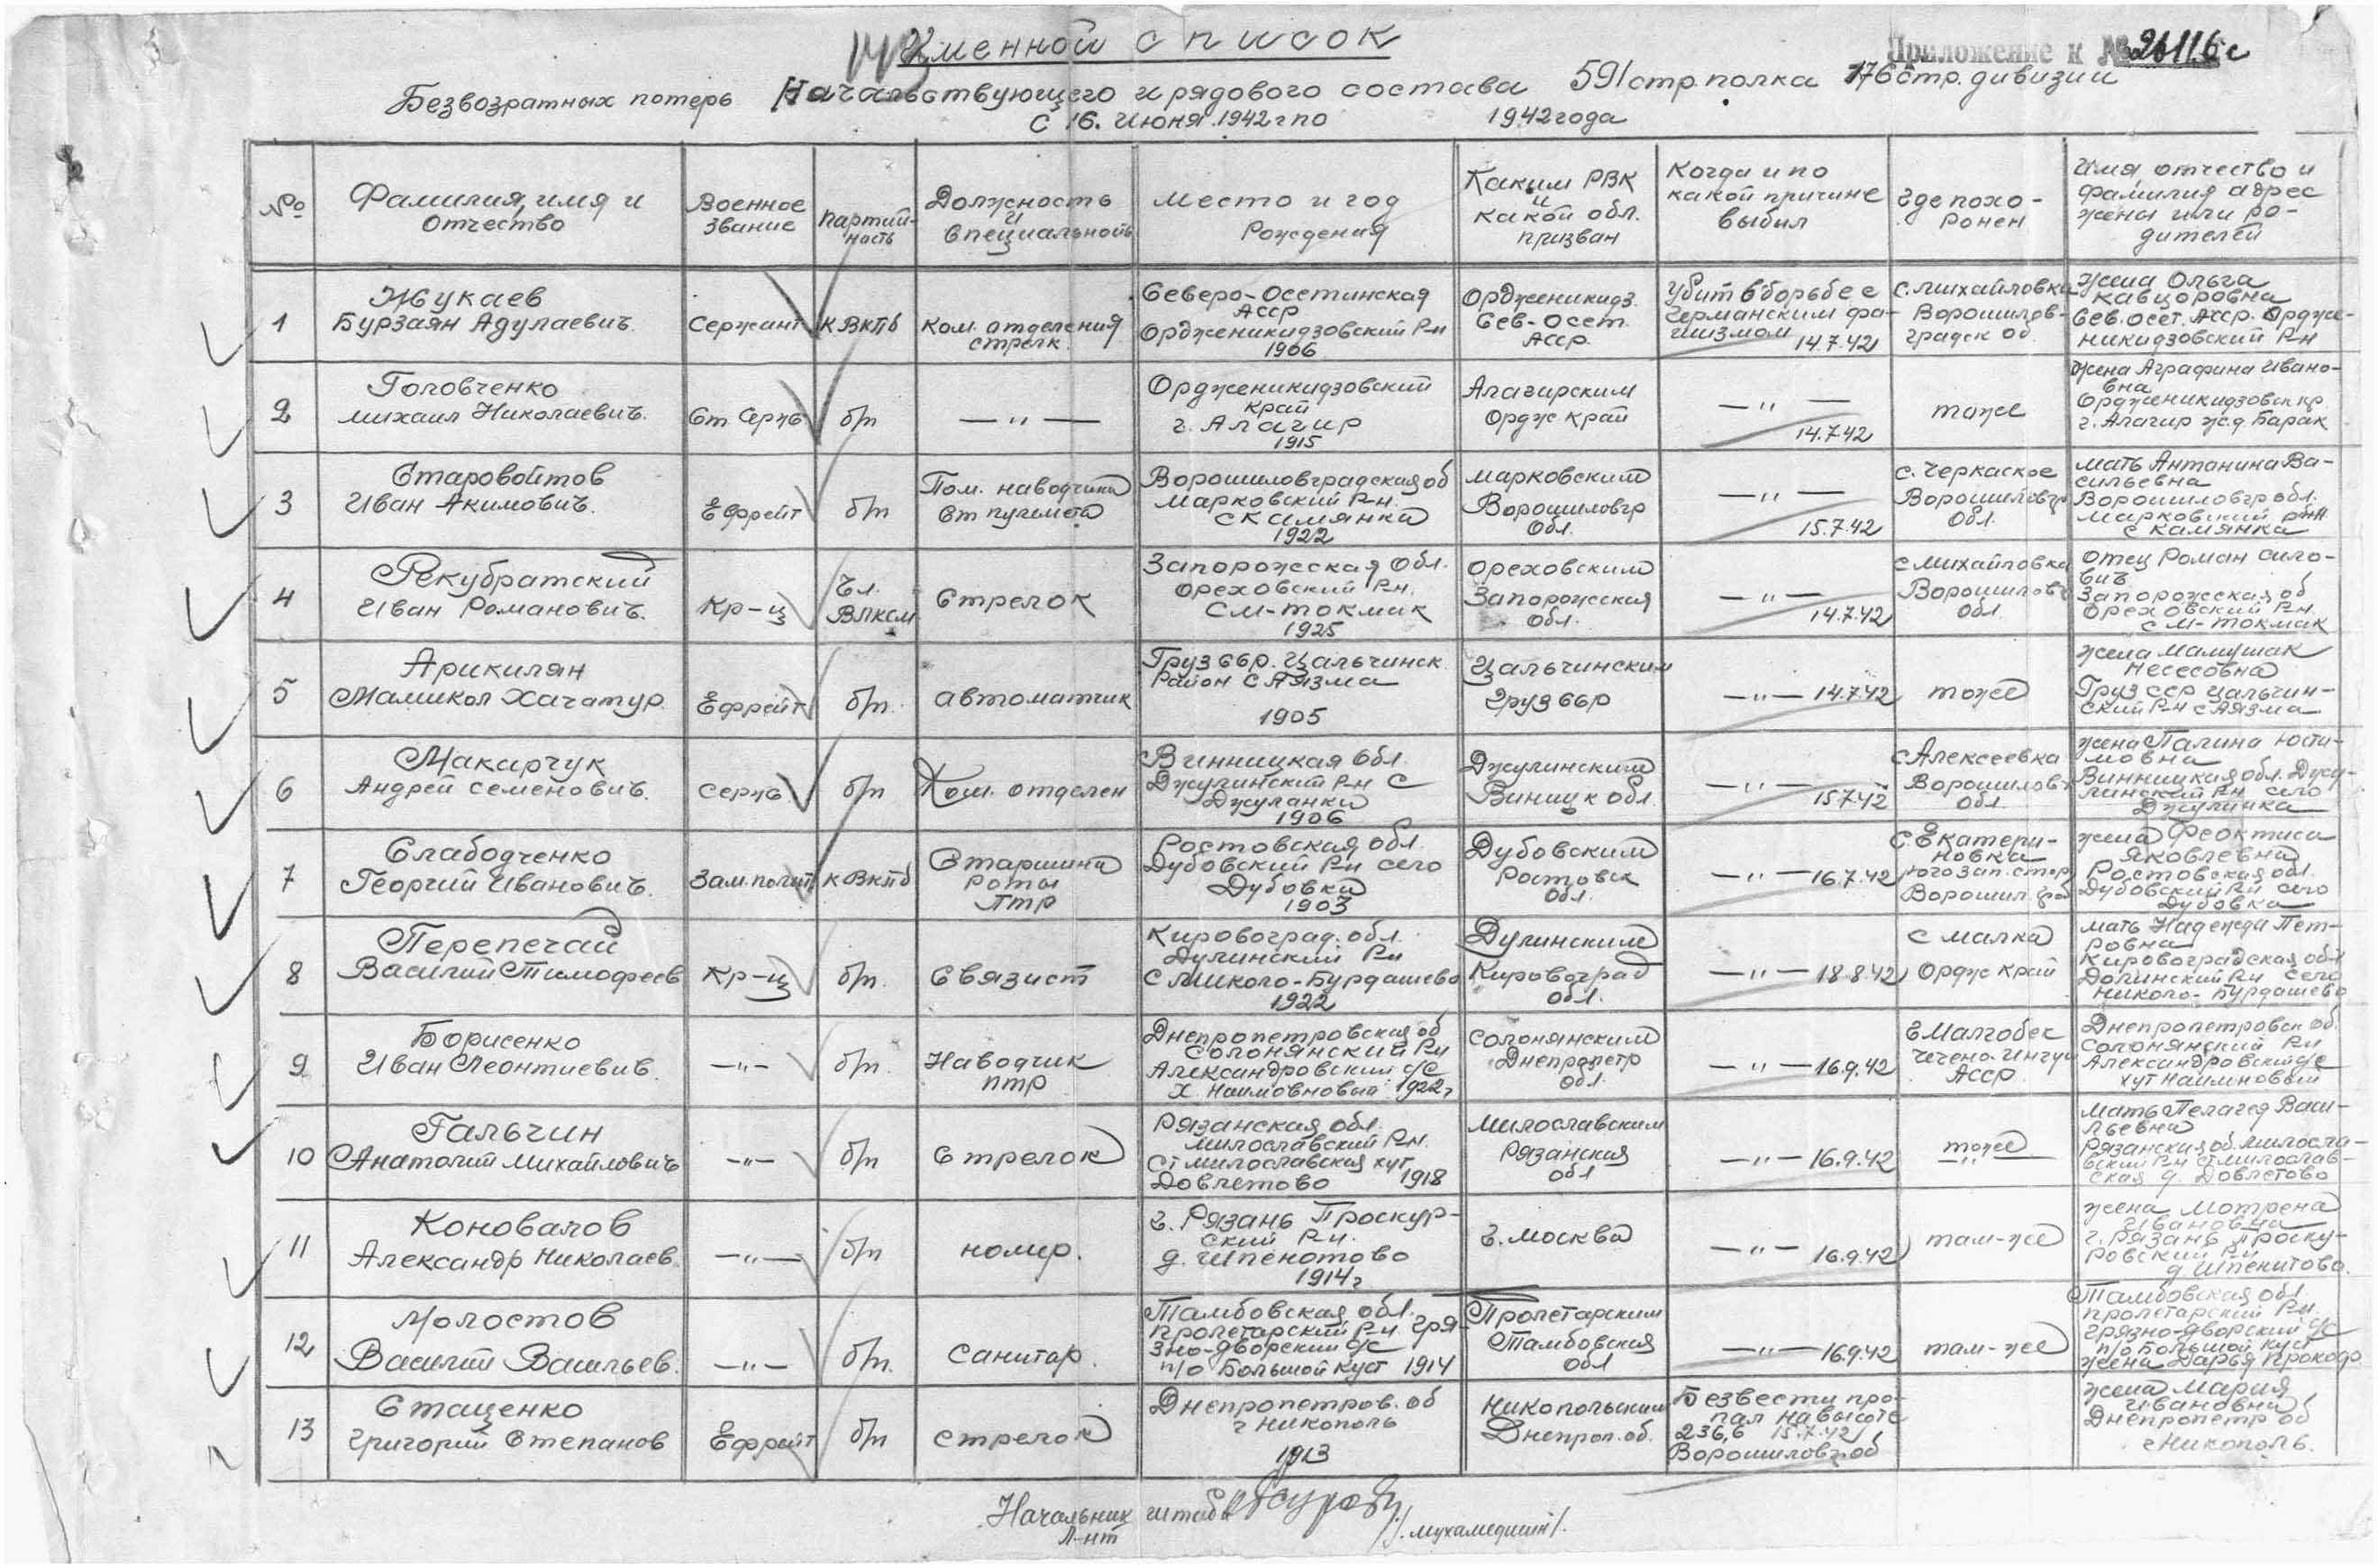 Именной список
Приложение к № 26116с
Безвозратных потерь Начальствующего и рядового состава 591 стр. полка 176 стр. дивизии
с 16. Июня 1942 г по 1942 года
№
Фамилия, имя и
Отчество
Военное
Звание
партий-
ность
Должность
и
Специальность
Место и год
Рождения
Каким РВК
и
какой обл.
призван
Когда и по
какой причине
выбыл
Где похо-
ронен
Имя, отчество и
фамилия адрес
жены или ро-
дителей
1
Жукаев
Бурзаян Адулаевич.
Сержант
К ВКПб
Ком. отделения
стрелк.
Северо-Осетинская
АССР
Орджени­кидзовский Р-н
1906
Ордженикидз.
Сев-Осет.
АССР
Убит в борьбе с
Германским фа-
шизмом 14.7.42
с. Михайловка
Ворошилов-
градск об
Жена Ольга
Кавцоровна
Сев. осет. Асср. Ордже-
никидзовский Р-н
2
Головченко
Михаил Николаевич.
Ст Серж
б/п
— " —
Ордженикидзовский
край
г. Алагир
1915
Алагирским
Ордж край
— " —
14.7.42
тоже
Жена Аграфина Ивано-
вна
Ордженикидзовск кр.
г. Алагир ж.д Барак
3
Старовойтов
Иван Акимович.
Ефрейт
б/п
Пом. наводчика
Ст пулемета
Ворошиловградская об
Марковский Р-н.
с Камянка
1922
Марковским
Ворошиловгр
Обл.
— " —
15.7.42
с. Черкаское
Ворошиловгр
Обл.
Мать Антанина Ва-
сильевна
Ворошиловгр обл.
Марковский
с Камянка
4
Рекубратский
Иван Романович.
Кр-ц
Чл.
ВЛКСМ
Стрелок
Запорожская Обл.
Ореховский Р-н.
с М-Токмак
1925
Ореховским
Запорожская
Обл.
— " —
14.7.42
с Михайловка
Ворошиловг
Обл.
Отец Роман Сило-
вич
Запорожская об
Ореховский Р-н.
с М-Токмак
5
Арикилян
Мамикол Хачатур.
Ефрейт
б/п.
автоматчик
Груз ССР. Цальчинск
Район с Аязма
1905
Цальчинским
Груз ССР
— " — 14.7.42
тоже
Жена Мамушак
Несесовна
Груз ССР Цальчин-
ский Р-н с Аязма
6
Макарчук
Андрей Семенович.
Серж
б/п
Ком. отделен
Винницкая обл.
Джулинский Р-н с
Джуланки
1906
Джулинским
Виницк обл.
— " —
15.7.42
с Алексеевка
Ворошиловг
Обл.
Жена Палина Юсти-
мовна
Винницкая обл. Джу-
линский Р-н село
Джулинка
7
Слабодченко
Георгий Иванович.
Зам. полит
К ВКПб
Старшина
роты
ПТР
Ростовская обл.
Дубовский Р-н село
Дубовка
1903
Дубовским
Ростовск
Обл.
— " — 16.7.42
с Екатери-
новка
юго зап. стор
Ворошил.
Жена Феоктиса
Яковлевна
Ростовская обл.
Дубовский Р-н село
Дубовка
8
Перепечай
Василий Тимофеев
Кр-ц
б/п.
Связист
Кировоград. обл.
Дулинский Р-н
с Миколо-Бурдашево
1922
Дулинским
Кировоград
обл.
— " — 18.8.42
с Малка
Ордж край
мать Надежда Пет-
ровна
Кировоградская обл
Долинский Р-н село
Николо-Бурдашево
9
Борисенко
Иван Леонтиевич.
— " —
б/п.
Наводчик
птр
Днепропетровская об
Солонянский Р-н
Александровский с/с
Х. Наимовновый 1922 г
Солонянским
Днепропетр
обл.
— " — 16.9.42
г Малгобек
Чечено-Ингуш
АССР
Днепропетровск об.
Солонянский Р-н
Александровский с/с
хут Наимновый
10
Гальчин
Анатолий Михайлович
— " —
б/п
Стрелок
Рязанская обл.
Милославский Р-н.
Ст Милославская хут
Довлетово 1918
Милославским
Рязанская
обл
— " — 16.9.42
тоже
— " —
Мать Пелагея Васи-
льевна
Рязанская об. Милосла-
вский Р-н ст Милослав-
ская д. Довлетово
11
Коновалов
Александр Николаев.
— " —
б/п
номер.
г. Рязань Проскур-
ский Р-н.
д. Шпенотово
1914 г
г. Москва
— " — 16.9.42
там-же
Жена Мотрена
Ивановна
г. Рязань Проску-
ровский Р-н
д Шпенитово.
12
Молостов
Василий Васильев.
— " —
б/п.
Санитар.
Тамбовская обл.
Пролетарский Р-н Гря-
зно-дворский с/с
п/о Большой Куст 1914
Пролетарским
Тамбовская
обл
— " — 16.9.42
там-же
Тамбовская обл
Пролетарский Р-н.
Грязно-дворский с/с
п/о Большой Куст
Жена Дарья Прокоф
13
Стаценко
Григорий Степанов
Ефрейт
б/п
стрелок
Днепропетров. об
г Никополь
1913
Никопольским
Днепроп. об.
Безвести про-
пал на высоте
236,6 15.7.42
Ворошиловг. об
Жена Мария
Ивановна
Днепропетр об
г Никополь.
Начальник штаба
Л-нт
/Мухамедшин/.